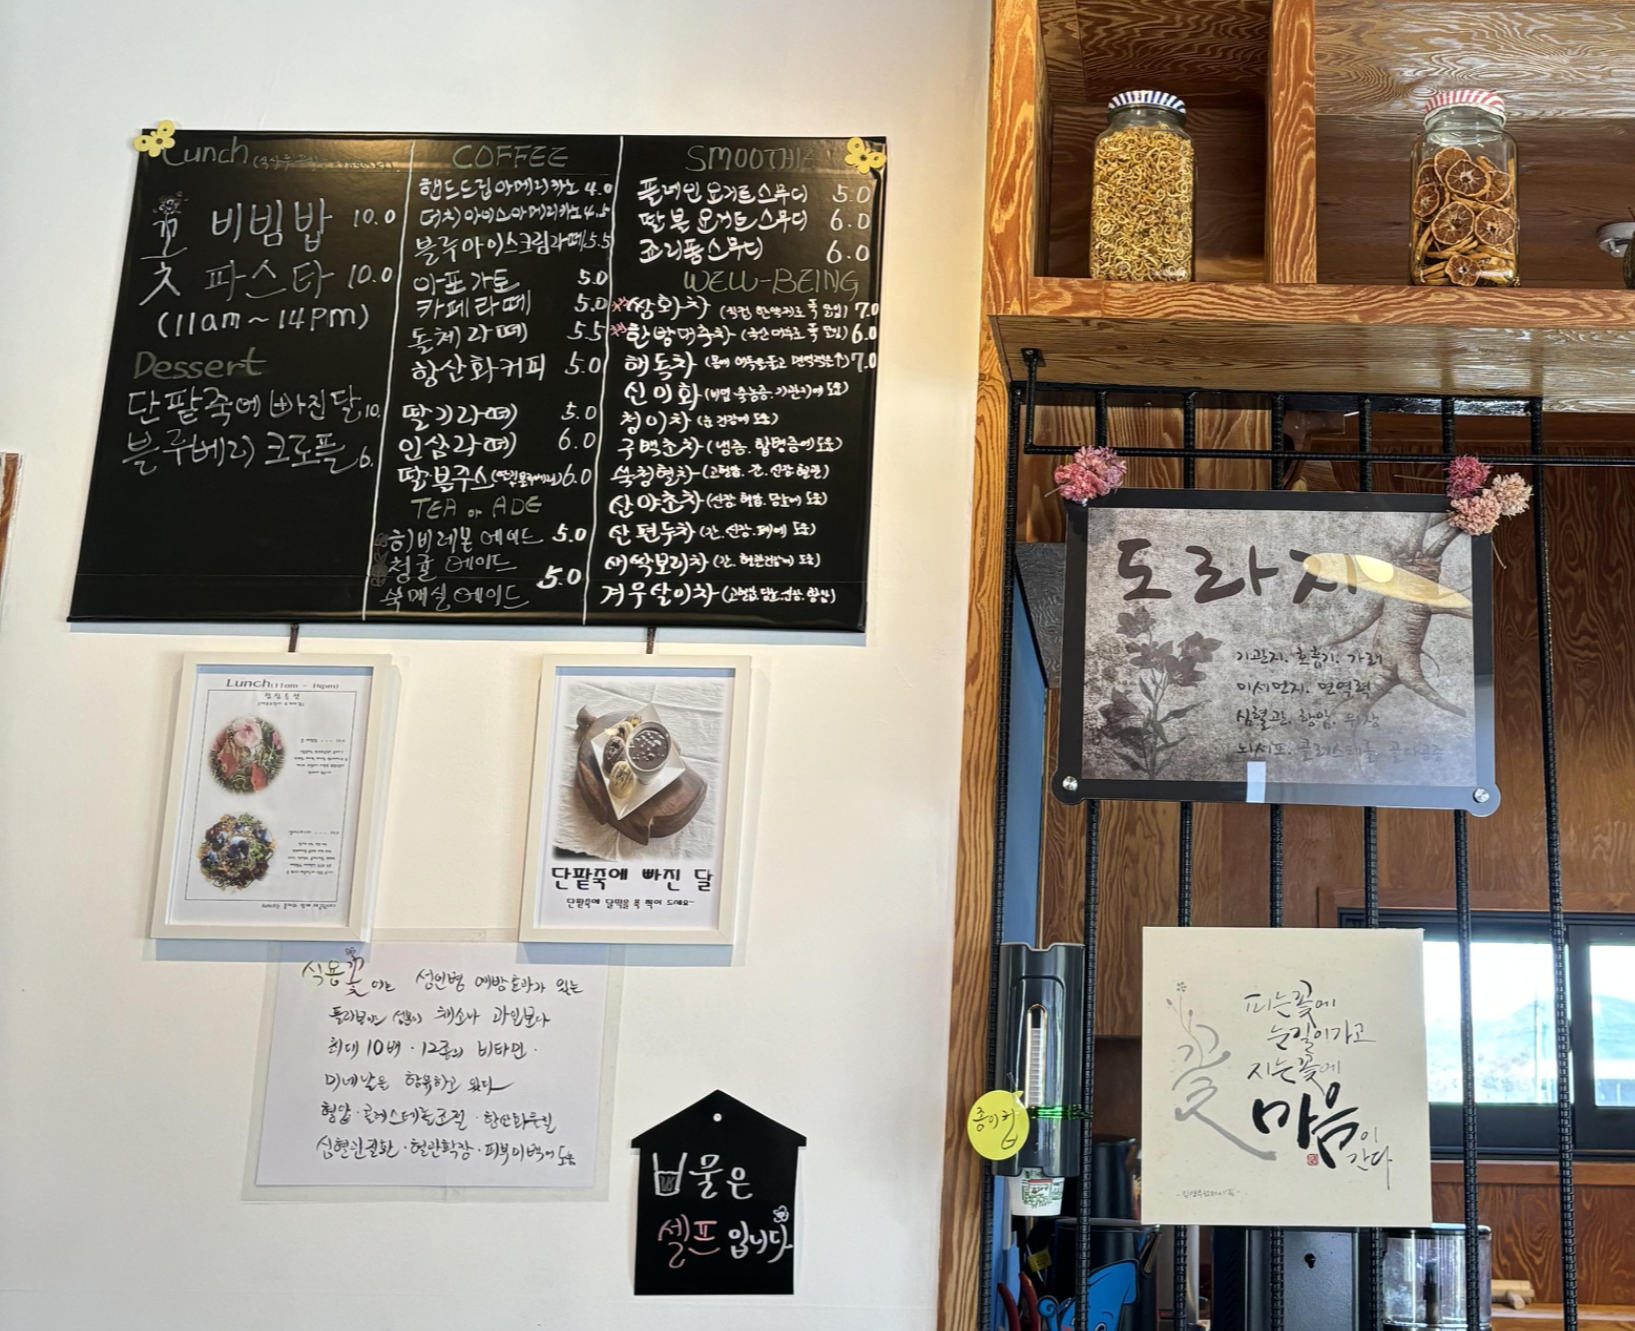 Lunch
꽃 비빔밥 10.0
파스타 10.0
(11am~14pm)
Dessert
단팥죽에 빠진 달 10.
블루베리 크로플 6.
COFFEE
핸드드립 아메리카노 4.0
더치 아이스 아메리카노 4.5
블루 아이스크림라떼 5.5
아포가토 5.0
카페라떼 5.0
돌체라떼 5.5
항산화커피 5.0
딸기라떼 5.0
인삼라떼 6.0
딸.블주스 6.0
TEA or ADE
히비레몬에이드 5.0
청귤에이드
5.0
쑥매실에이드
SMOOTHIE
플레인 요거트 스무디 5.0
딸블 요거트 스무디 6.0
죠리퐁 스무디 6.0
WELL-BEING
쌍화차 7.0
한방대추차 6.0
해독차 7.0
신이화
청이차 (눈 건강에 도움)
구백초차 (냉증, 합병증에 도움)
쑥청혈차 (고혈압, 간, 신장 혈관)
산야초차
산편두차 (간, 신장, 폐에 도움)
새싹보리차 (간, 혈관건강에 도움)
겨우살이차
Lunch(11am - 14pm)
단팥죽에 빠진 달
단팥죽에 달떡을 콕 찍어 드세요~
식용꽃에는 성인병 예방효과가 있는
폴리페놀 성분이 채소나 과일보다
최대 10배 · 12종의 비타민 ·
미네날을 함유하고 있다
혈압 · 콜레스테롤조절 · 항산화물질
심혈관질환 · 혈관확장 · 피부미백에 도움
물은
셀프입니다
도라지
기관지. 호흡기. 가래
미세먼지. 면역력
심혈관. 항암. 위장
뇌세포. 콜레스테롤. 골다공증
종이컵
꽃
피는 꽃에
눈길이 가고
지는 꽃에
마음이
간다